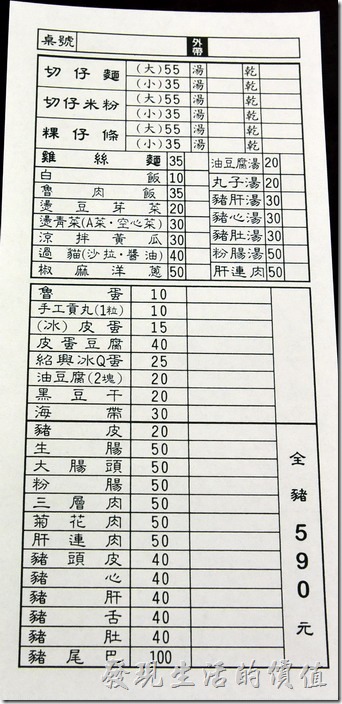 桌號 外帶
切仔麵 (大)55 湯 乾
(小)35 湯 乾
切仔米粉 (大)55 湯 乾
(小)35 湯 乾
粿仔條 (大)55 湯 乾
(小)35 湯 乾
雞絲麵 35 油豆腐湯 20
白飯 10 丸子湯 20
魯肉飯 35 豬肝湯 30
燙豆芽菜 20 豬心湯 30
燙青菜(A菜·空心菜) 30 豬肚湯 30
涼拌黃瓜 30 粉腸湯 50
過貓(沙拉·醬油) 40 肝連肉 50
椒麻洋蔥 50
魯蛋 10
手工貢丸(1粒) 10
(冰)皮蛋 15
皮蛋豆腐 40
紹興冰Q蛋 25
油豆腐(2塊) 20
黑豆干 20
海帶 30
豬皮 20
生腸 50
大腸頭 50
粉腸 50
三層肉 50
菊花肉 50
肝連肉 50
豬頭皮 40
豬心 40
豬肝 40
豬舌 40
豬肚 40
豬尾巴 100
全豬590元
發現生活的價值